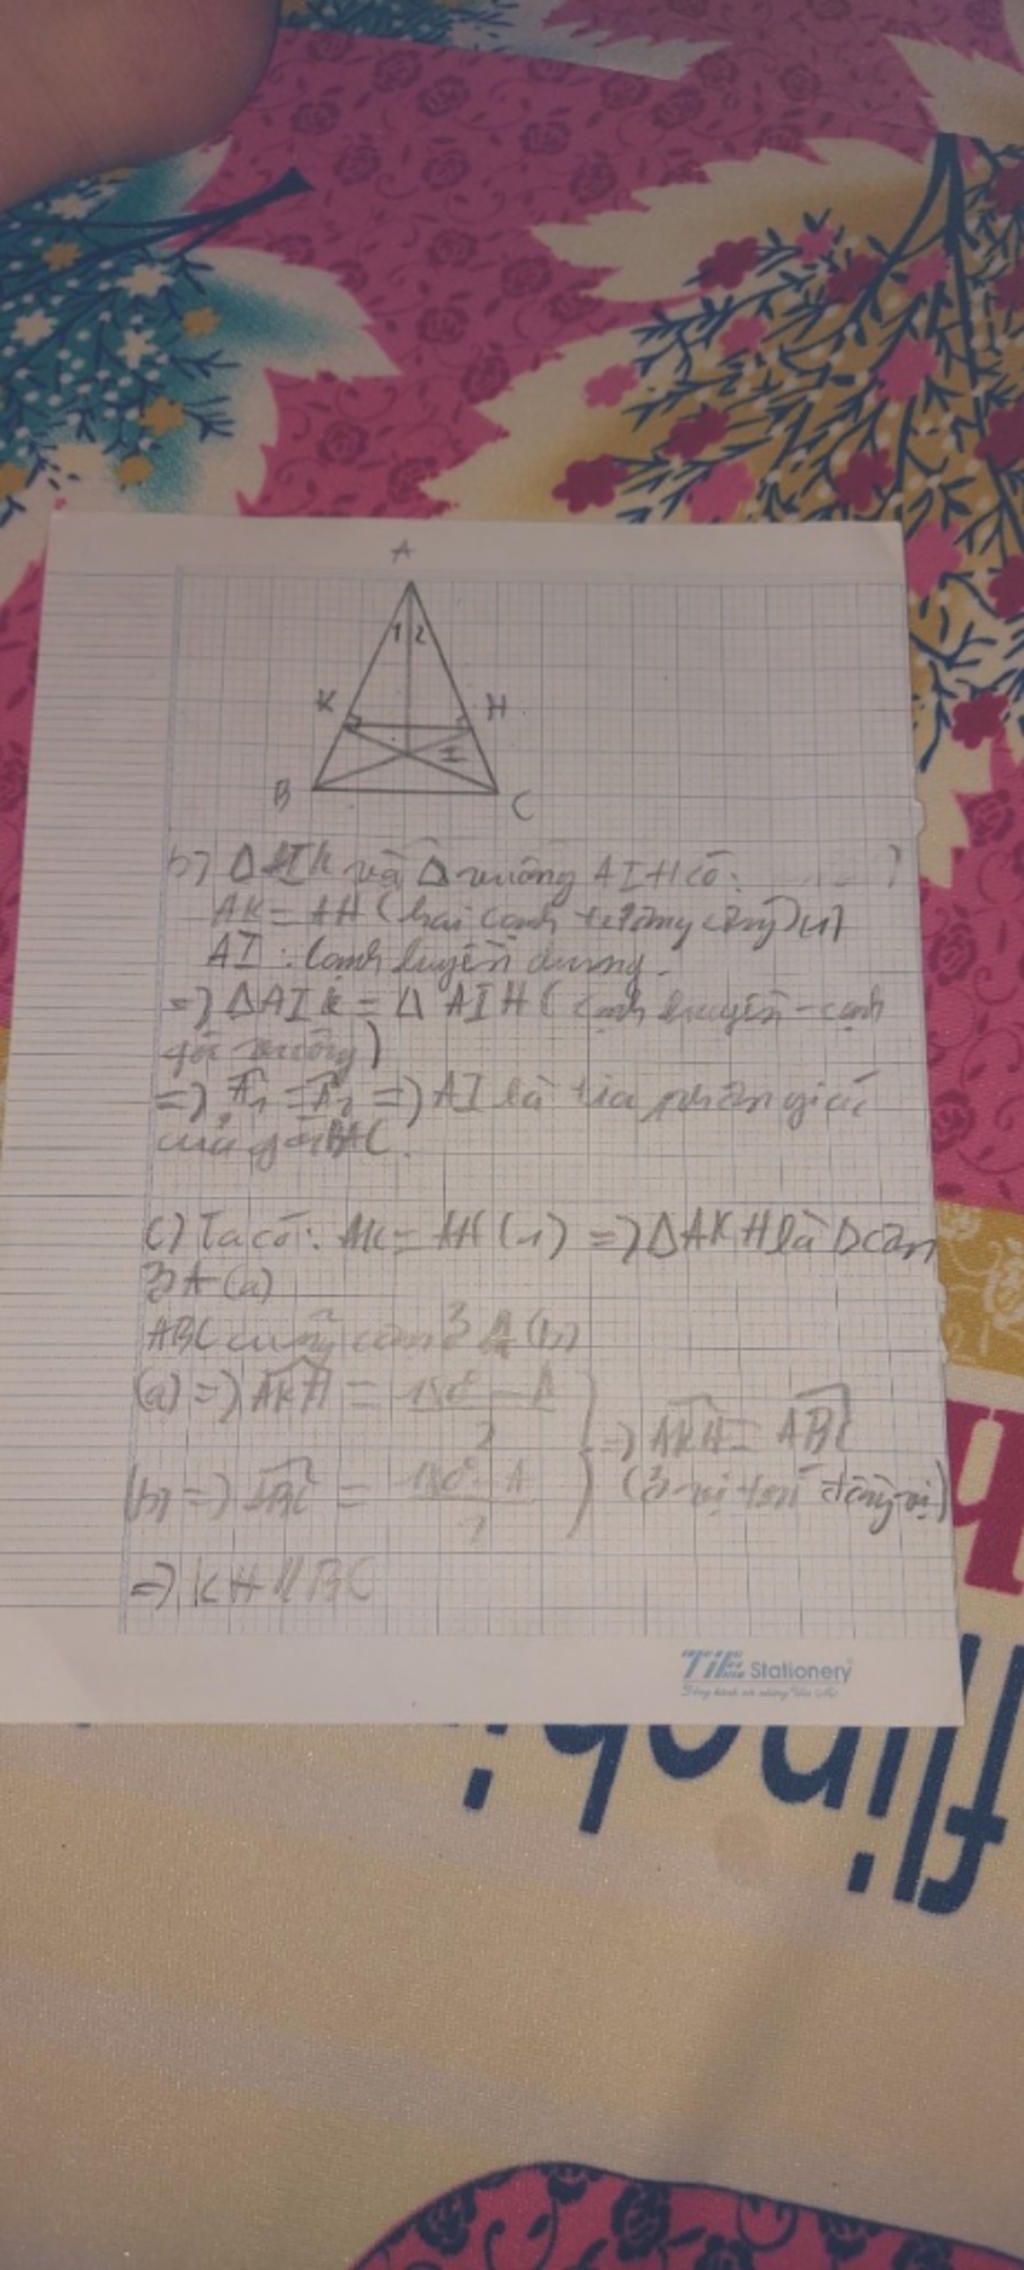 A
1 2
K H
I
B C
b) Δ AIK và Δ vuông AIH có:
AK = AH (hai cạnh tương ứng) (1)
AI : Cạnh huyền chung.
=> ΔAIK = Δ AIH (cạnh huyền - cạnh
góc vuông)
=> A1 = A2 => AI là tia phân giác
của góc BAC.
c) Ta có: AK = AH (1) => ΔAKH là Δ cân
ở A (a)
ABC cũng cân ở A (b)
(a) => AKH = 180° - A
2
=> AKH = ABC
(b) => ABC = 180° - A
2
(ở vị trí đồng vị)
=> KH // BC
Stationery
flinohi